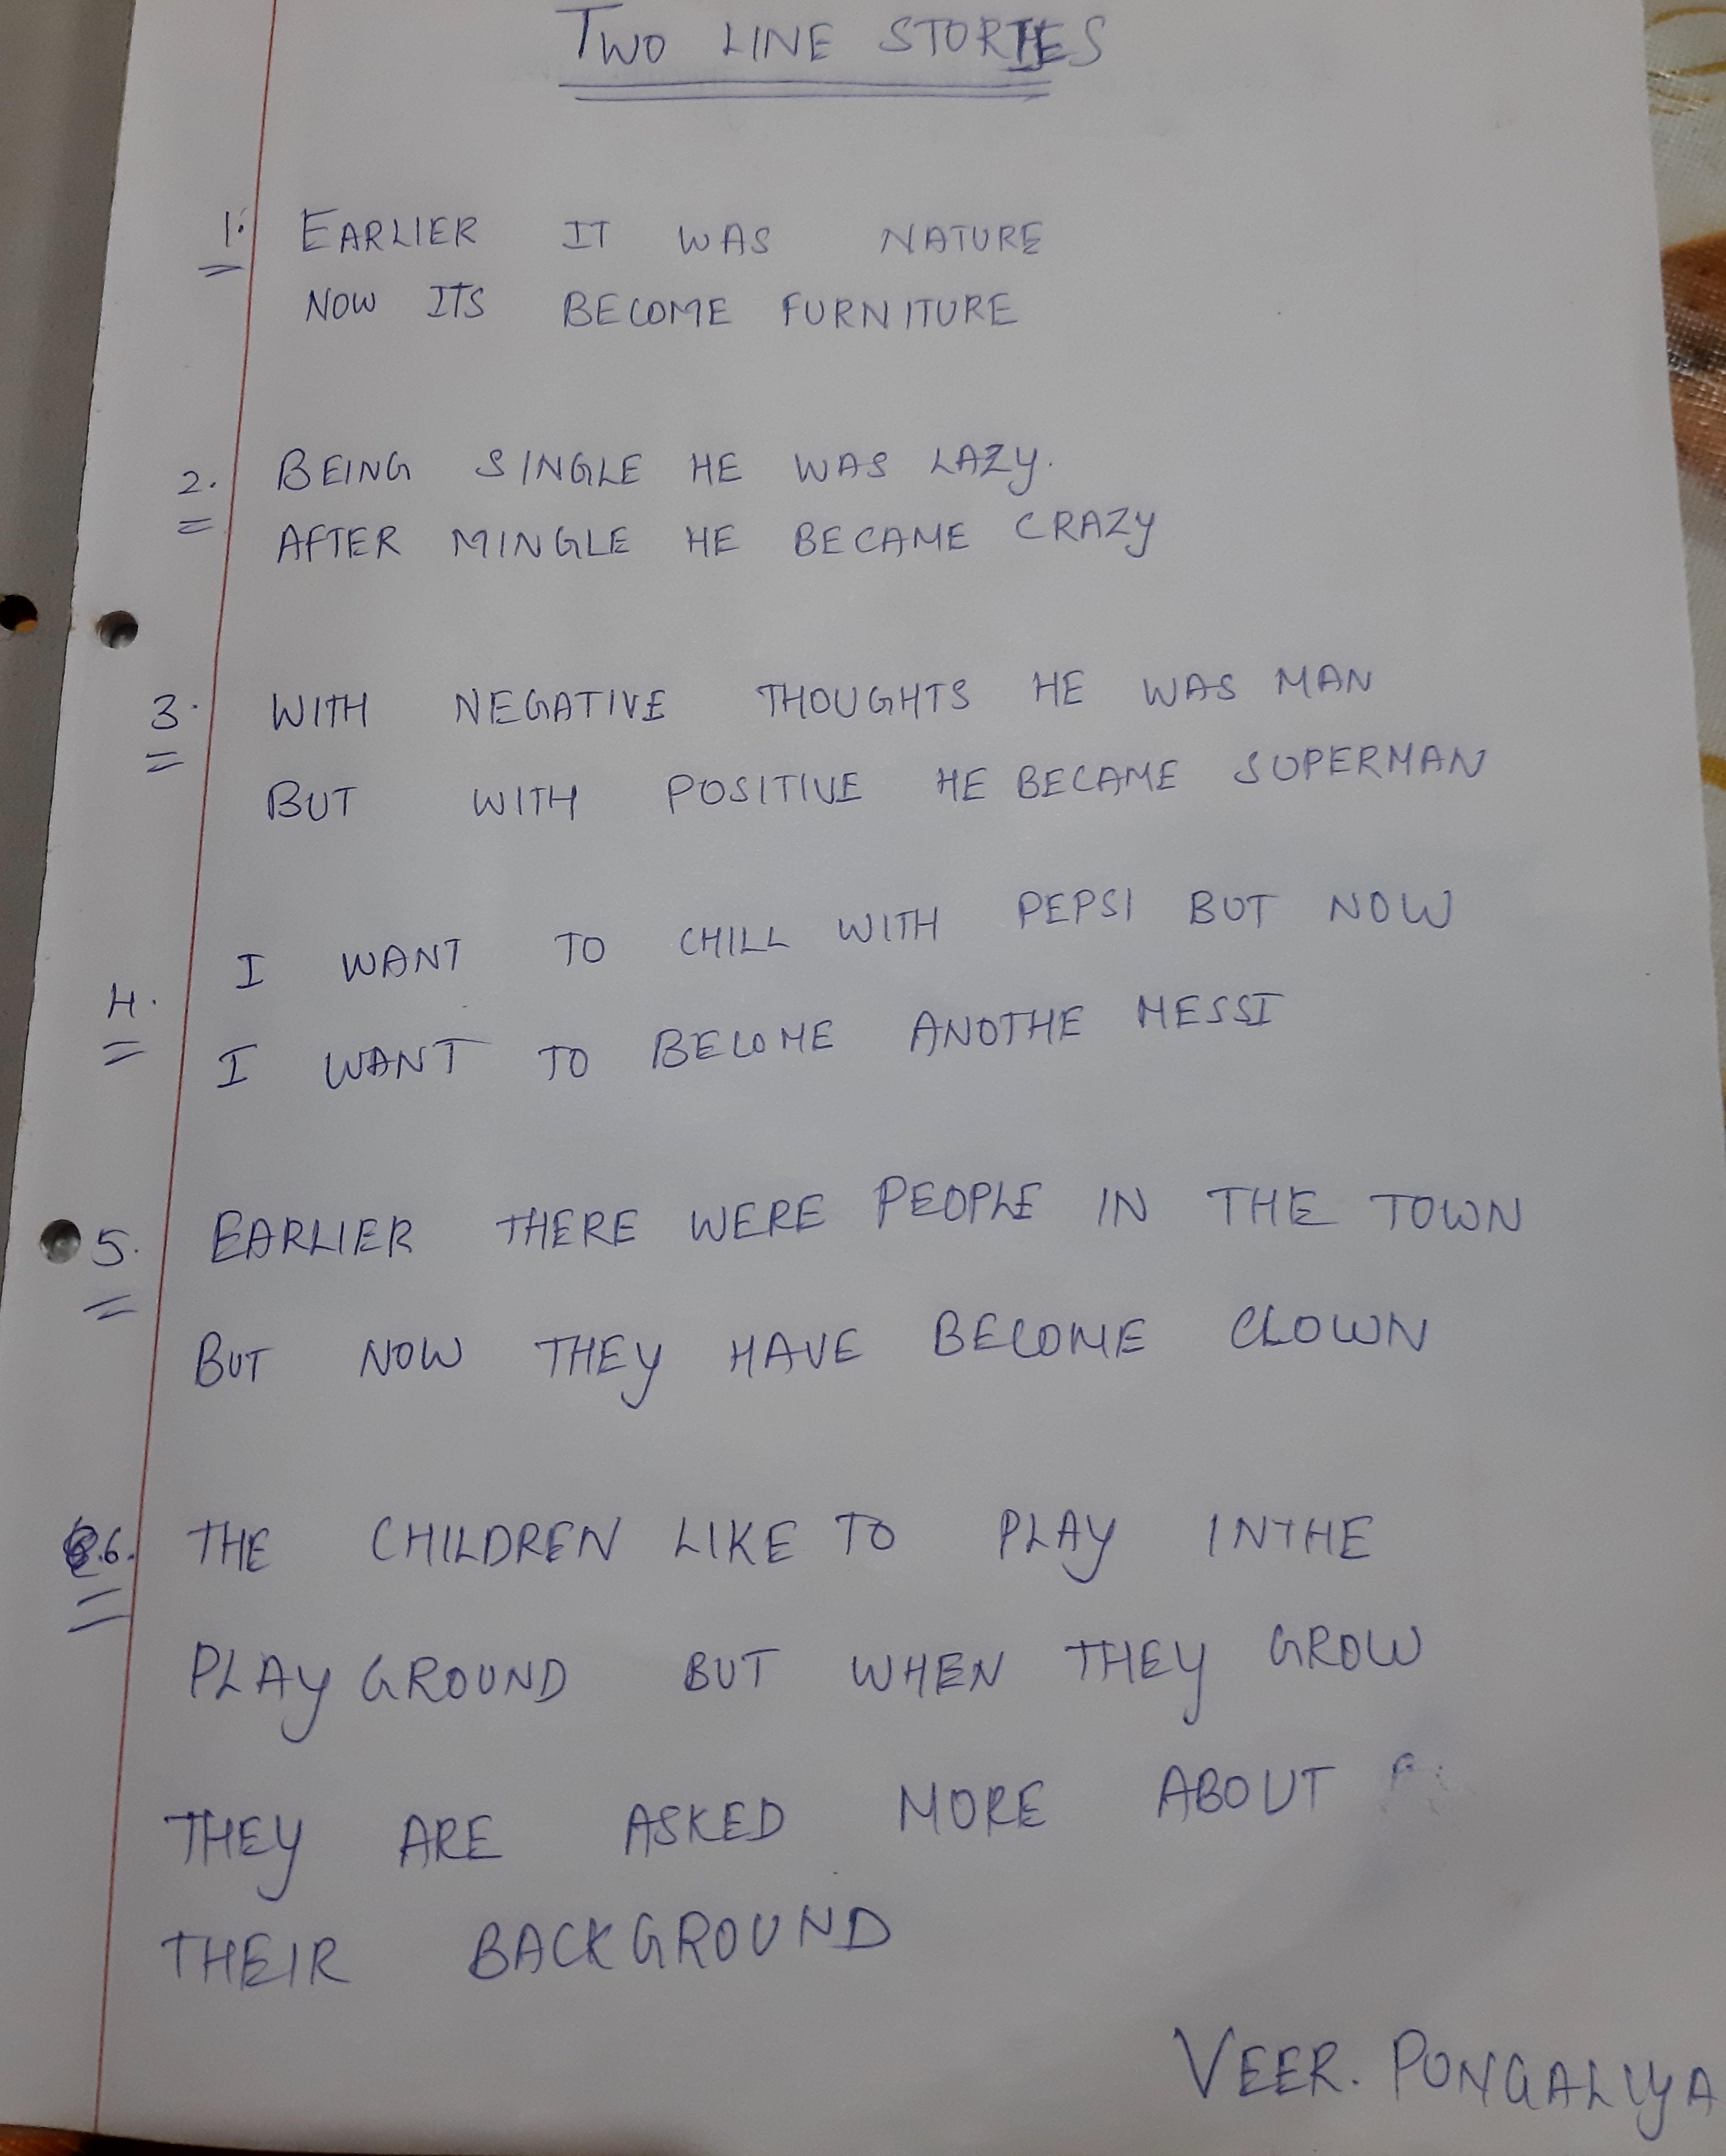 TWO LINE STORIES
1. EARLIER IT WAS NATURE
NOW ITS BECOME FURNITURE
2. BEING SINGLE HE WAS LAZY.
AFTER MINGLE HE BECAME CRAZY
3. WITH NEGATIVE THOUGHTS HE WAS MAN
BUT WITH POSITIVE HE BECAME SUPERMAN
4. I WANT TO CHILL WITH PEPSI BUT NOW
I WANT TO BECOME ANOTHE MESSI
5. EARLIER THERE WERE PEOPLE IN THE TOWN
BUT NOW THEY HAVE BECOME CLOWN
6. THE CHILDREN LIKE TO PLAY INTHE
PLAY GROUND BUT WHEN THEY GROW
THEY ARE ASKED MORE ABOUT
THEIR BACKGROUND
VEER. PUNGALIYA